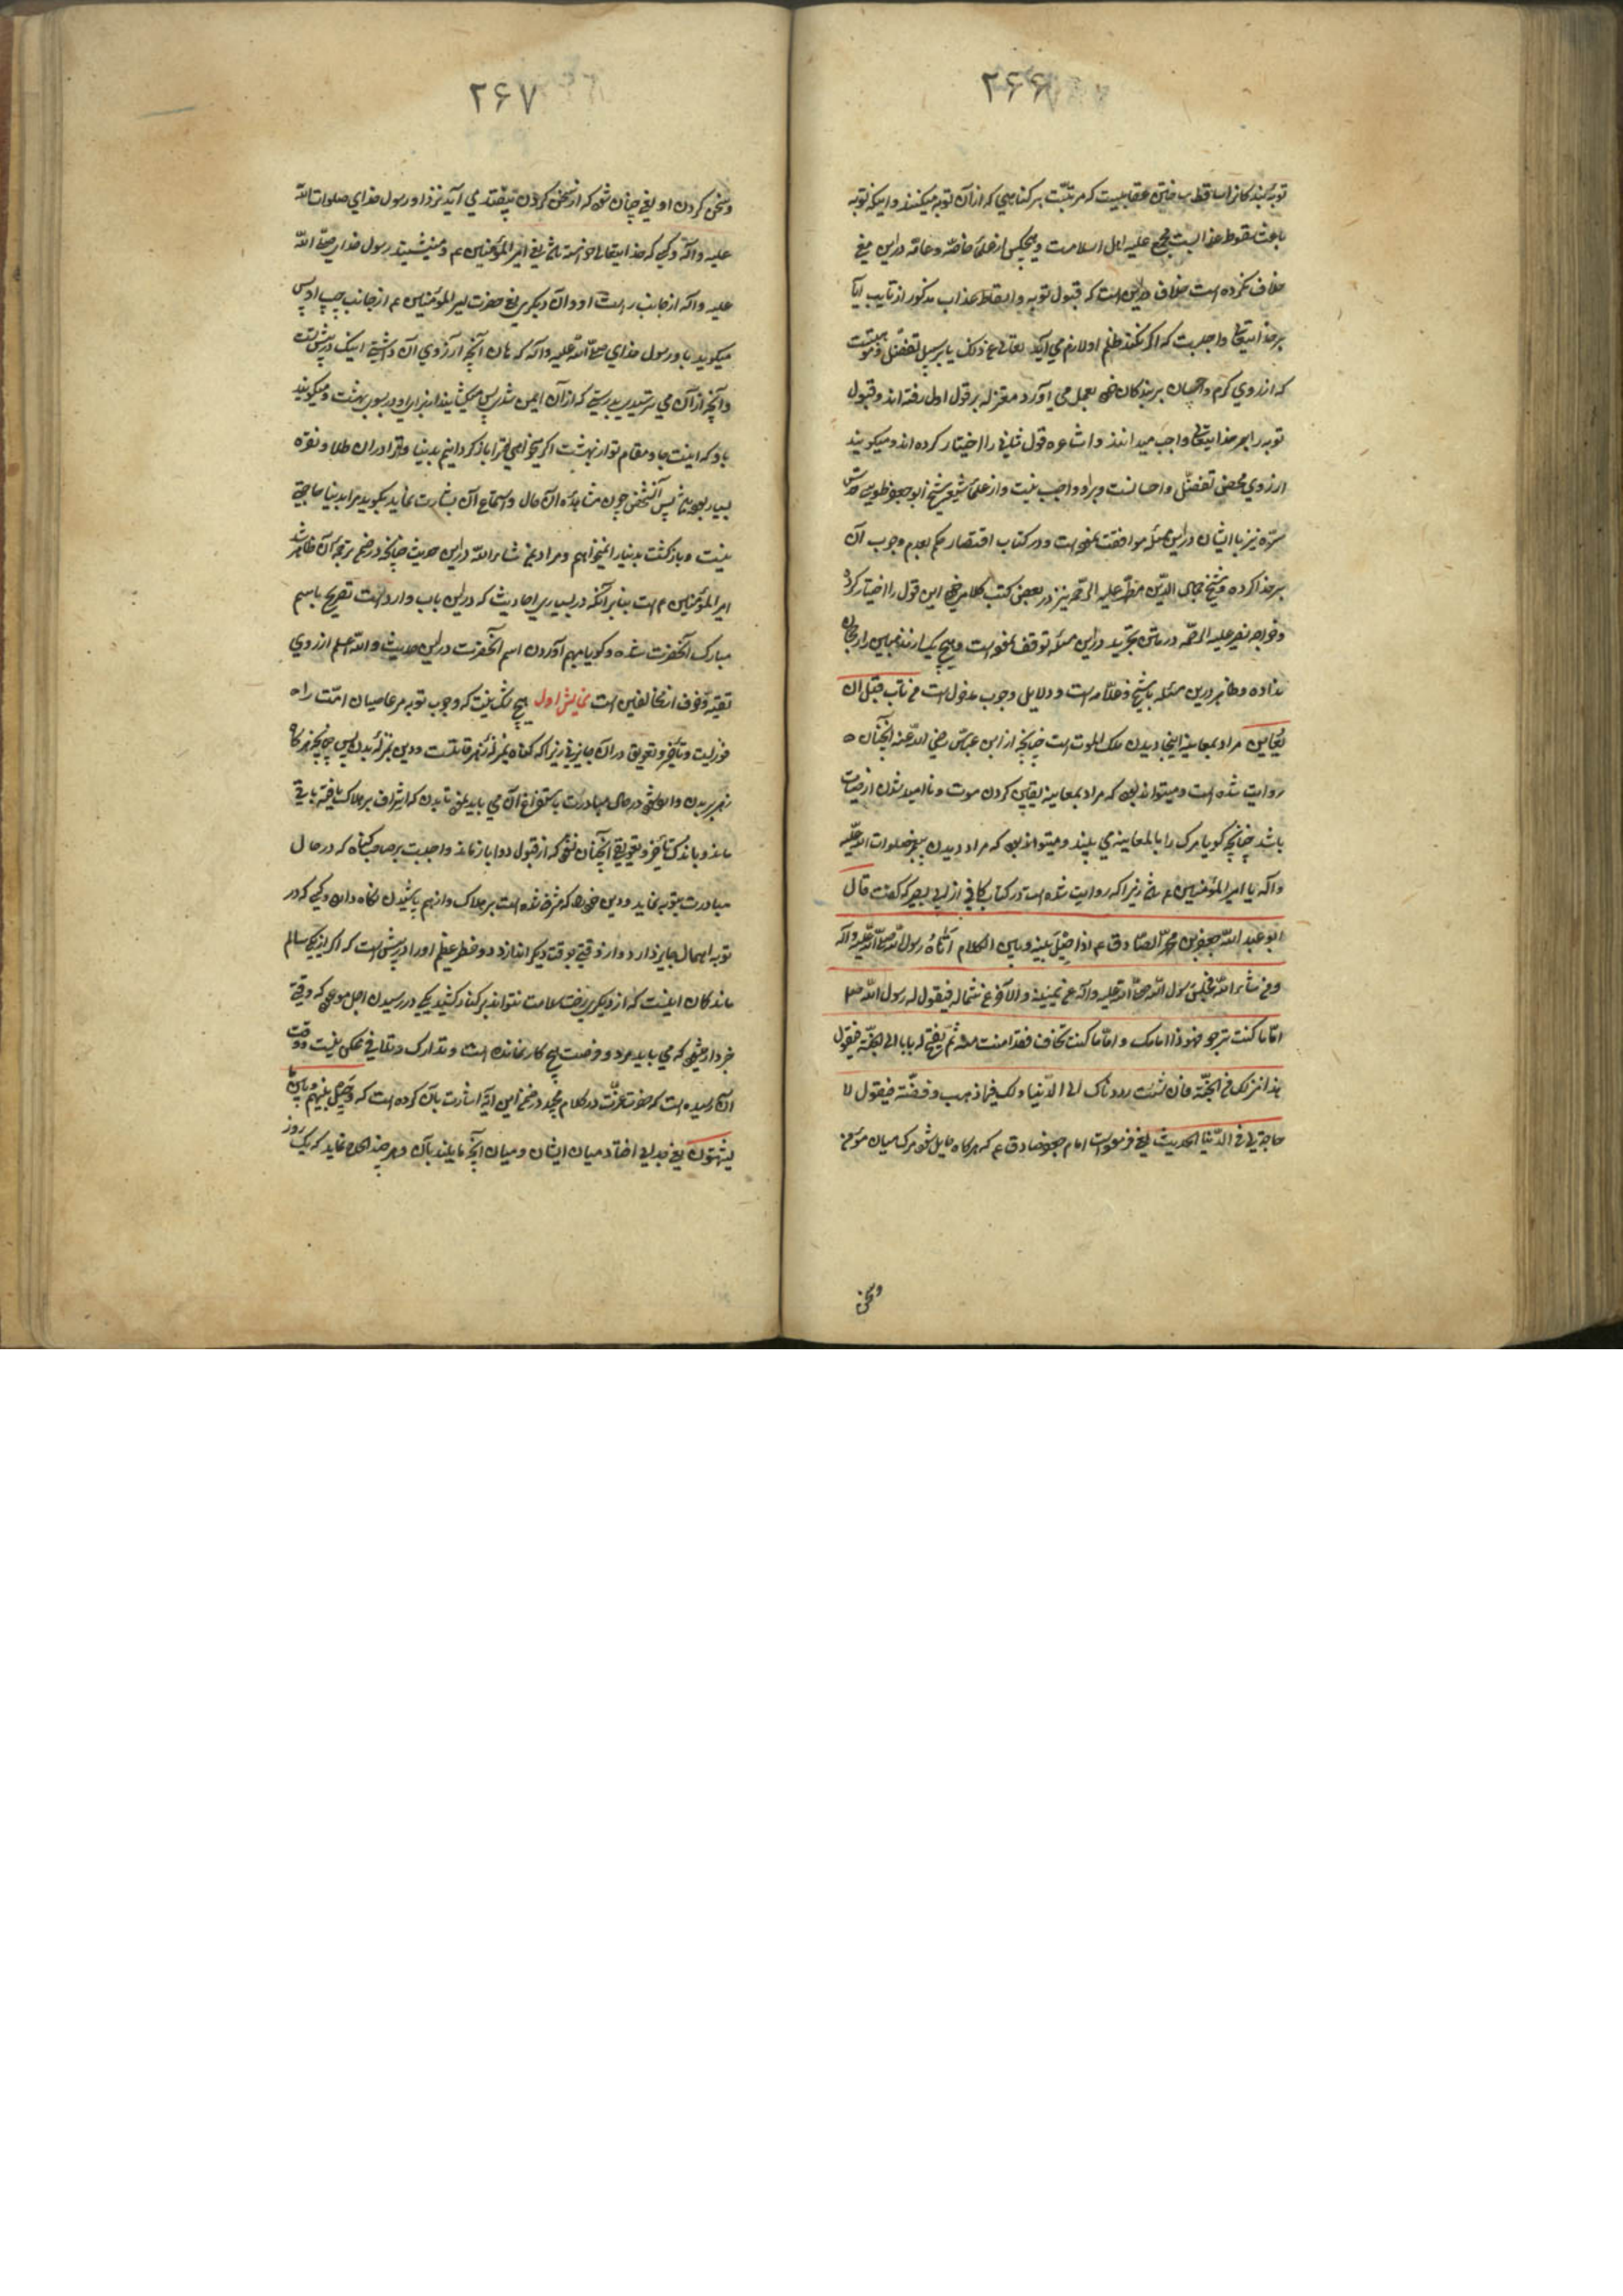 ۲۶۶
توبه کنندگانرا سقوط عقابیست که مرتبست بر گناهی که از آن توبه میکنند و اینکه توبه
باعث سقوط عذابست مجمع علیه اهل اسلامست و هیچکس از علمای خاصه و عامه در این معنی
خلاف نکرده است خلاف در این است که قبول توبه و اسقاط عذاب مذکور از تایب آیا
بر خدایتعالی واجبست که اگر نکند ظلم او لازم می آید تعالی عن ذلک یا بر سبیل تفضل
که از روی کرم و احسان بر بندگان خود بعمل می آورد معتزله بر قول اول رفته اند و قبول
توبه را بر خدایتعالی واجب میدانند و اشاعره قول ثانی را اختیار کرده اند و میگویند
از روی محض تفضل و احسانست و بر او واجب نیست و از علمای شیعه شیخ ابو جعفر طوسی قدس
سره نیز با ایشان در این مسئله موافقت نموده است و در کتاب اقتصار حکم بعدم وجوب آن
بر خدا کرده و شیخ جمال الدین مطهر علیه الرحمه نیز در بعضی کتب کلامی خود این قول را اختیار کرده
و خواجه نصیر علیه الرحمه در متن تجرید در این مسئله توقف نموده است و هیچ یک از مذهبین را رجحان
نداده و ظاهر درین مسئله با شیخ و علامه است و دلایل وجوب مدخول است من تاب قبل ان
یعاین مراد بمعاینه اینجا دیدن ملک الموت است چنانچه از ابن عباس رضی الله عنه آنچنان
روایت شده است و میتواند بود که مراد بمعاینه یقین کردن موت و ناامید شدن از حیات
باشد چنانچه گویا مرگ را بالمعاینه می بیند و میتواند بود که مراد دیدن پیغمبر صلوات الله علیه
و آله یا امیر المؤمنین ع باشد زیرا که روایت شده است در کتاب کافی از ابی بصیر که گفت قال
ابو عبد الله جعفر بن محمد الصادق ع اذا حیل بینه و بین الکلام اتاه رسول الله صلی الله علیه و آله
و من شاء الله فجلس رسول الله صلی الله علیه و آله عن یمینه و الآخر عن شماله فیقول له رسول الله صلعم
اما ما کنت ترجو فهو ذا امامک و اما ما کنت تخاف فقد امنت منه ثم یفتح له بابا الی الجنه فیقول
هذا منزلک من الجنة فان شئت رددناک الی الدنیا و لک فیها ذهب و فضة فیقول لا
حاجة لی فی الدنیا الحدیث یعنی فرموده است امام جعفر صادق ع که هر گاه حایل شود مرگ میان مؤمن
و سخن
۲۶۷
و سخن کردن او یعنی چنان شود که از سخن کردن بیفتد می آید نزد او رسول خدای صلوات الله
علیه و آله و کسی که خدایتعالی خواسته باشد یعنی امیر المؤمنین ع و مینشیند رسول خدای صلی الله
علیه و آله از جانب راست او و آن دیگری یعنی حضرت امیر المؤمنین ع از جانب چپ او پس
میگوید باو رسول خدای صلی الله علیه و آله که هان آنچه آرزوی آن داشتی اینک در پیش تست
و آنچه از آن می ترسیدی بدرستی که از آن ایمن شدی پس میگشایند از برای او دری بسوی بهشت و میگویند
باو که اینست جا و مقام تو از بهشت اگر میخواهی ترا باز گردانیم بدنیا و ترا در آن طلا و نقره
بسیار بوده باشد پس آنشخص چون مشاهده آن حال و استماع آن بشارت نماید بگوید مرا بدنیا حاجتی
نیست و بازگشت بدنیا را نمیخواهم و مراد بمن شاء الله در این حدیث چنانچه در ضمن ترجمه آن ظاهر شد
امیر المؤمنین ع است بنابر آنکه در بسیاری احادیث که در این باب وارد است تصریح باسم
مبارک آنحضرت شده و گویا مبهم آوردن اسم آنحضرت در این حدیث و الله اعلم از روی
تقیه و خوف از مخالفین است نمایش اول هیچ شک نیست که وجوب توبه مر عاصیان امت راه
فوریست و تأخیر و تعویق در آن جایز نی زیرا که گناه بمنزله زهر قاتلست و دین بمنزله بدن پس چنانچه
زهر بدن را در حال مبادرت باستفراغ آن می باید نمود تا بدن که اشراف بر هلاک یافته باقی
ماند و باندک تأخیر و تعویقی آنچنان نشود که از قبول دوا باز ماند واجبست بر صاحب گناه که در حال
مبادرت بتوبه نماید و دین خود را که مشرف شده است بر هلاک و از هم پاشیدن نگاه دارد و کسی که در
توبه اهمال جایز دارد و از وقتی بوقت دیگر اندازد دو خطر عظیم او را در پیش است که اگر از یکی سالم
ماند گمان اینست که از دیگری رخت سلامت نتواند بر کنار کشید یکی در رسیدن اجل موعود که وقتی
خبردار شود که می باید مرد و فرصت هیچ کار نمانده است و تدارک و تلافی ممکن نیست و وقت
آن رسیده است که حضرت عزت در کلام مجید در ضمن این آیه اشارت بآن کرده است که و حیل بینهم و بین ما
یشتهون یعنی جدایی افتاد میان ایشان و میان آنچه مایلند بآن و هر چند الحاح نماید که یک روز